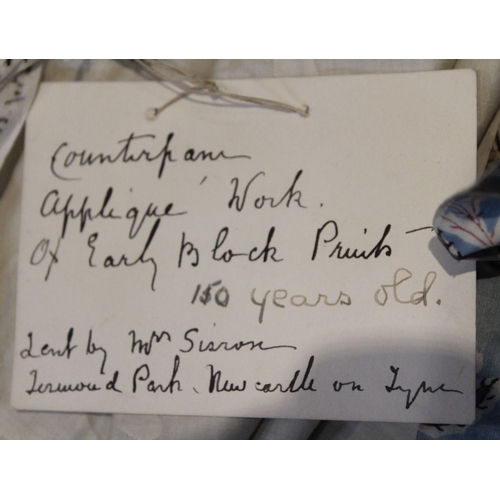 Counterpane
Applique Work.
Of Early Block Prints
150 years old.
Lent by Mrs Sisson
Park. Newcastle on Tyne